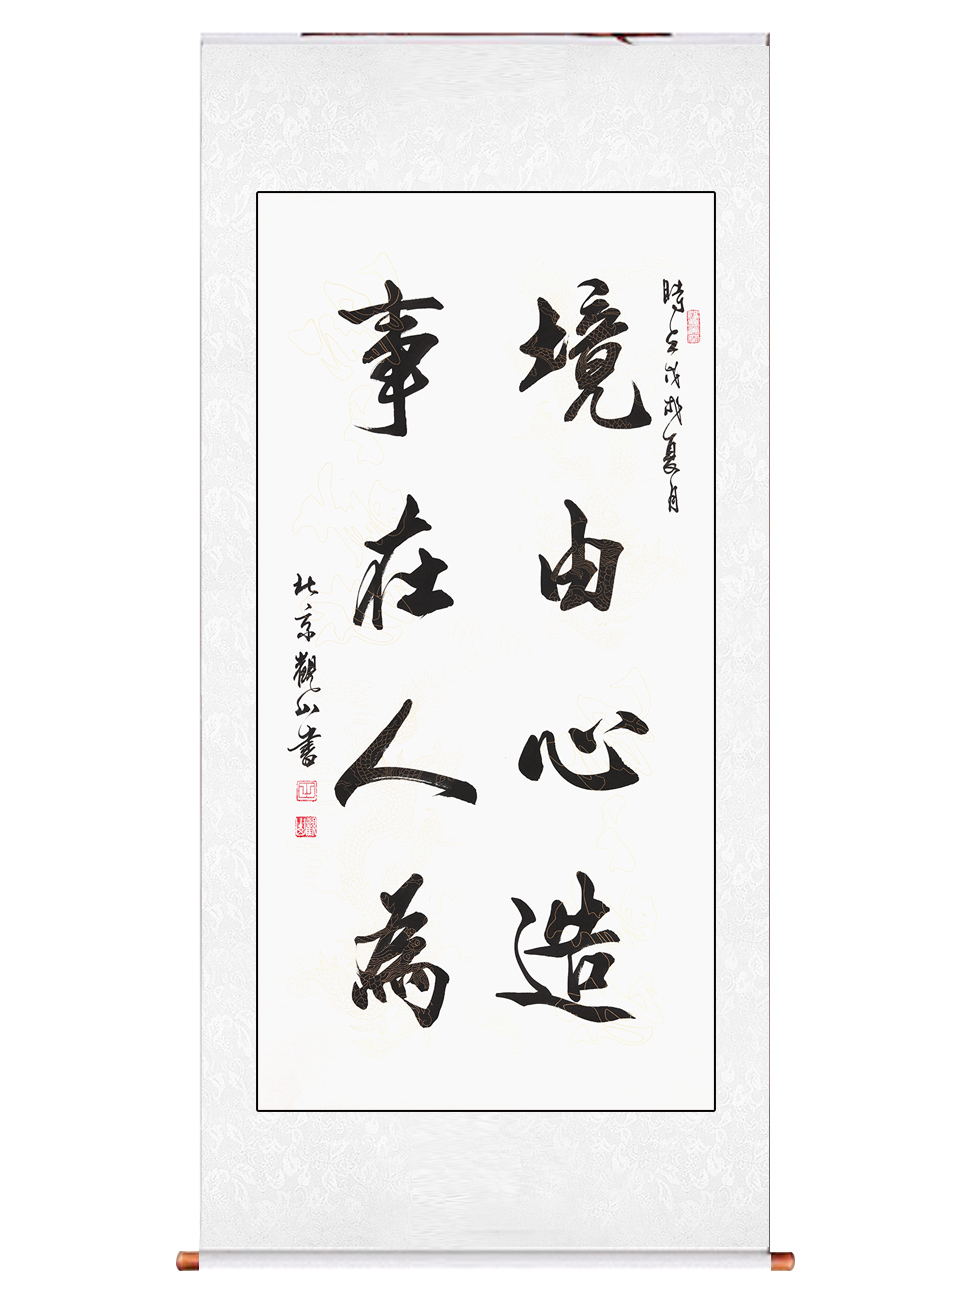 時在戊戌夏月
境由心造
事在人為
北京觀山書